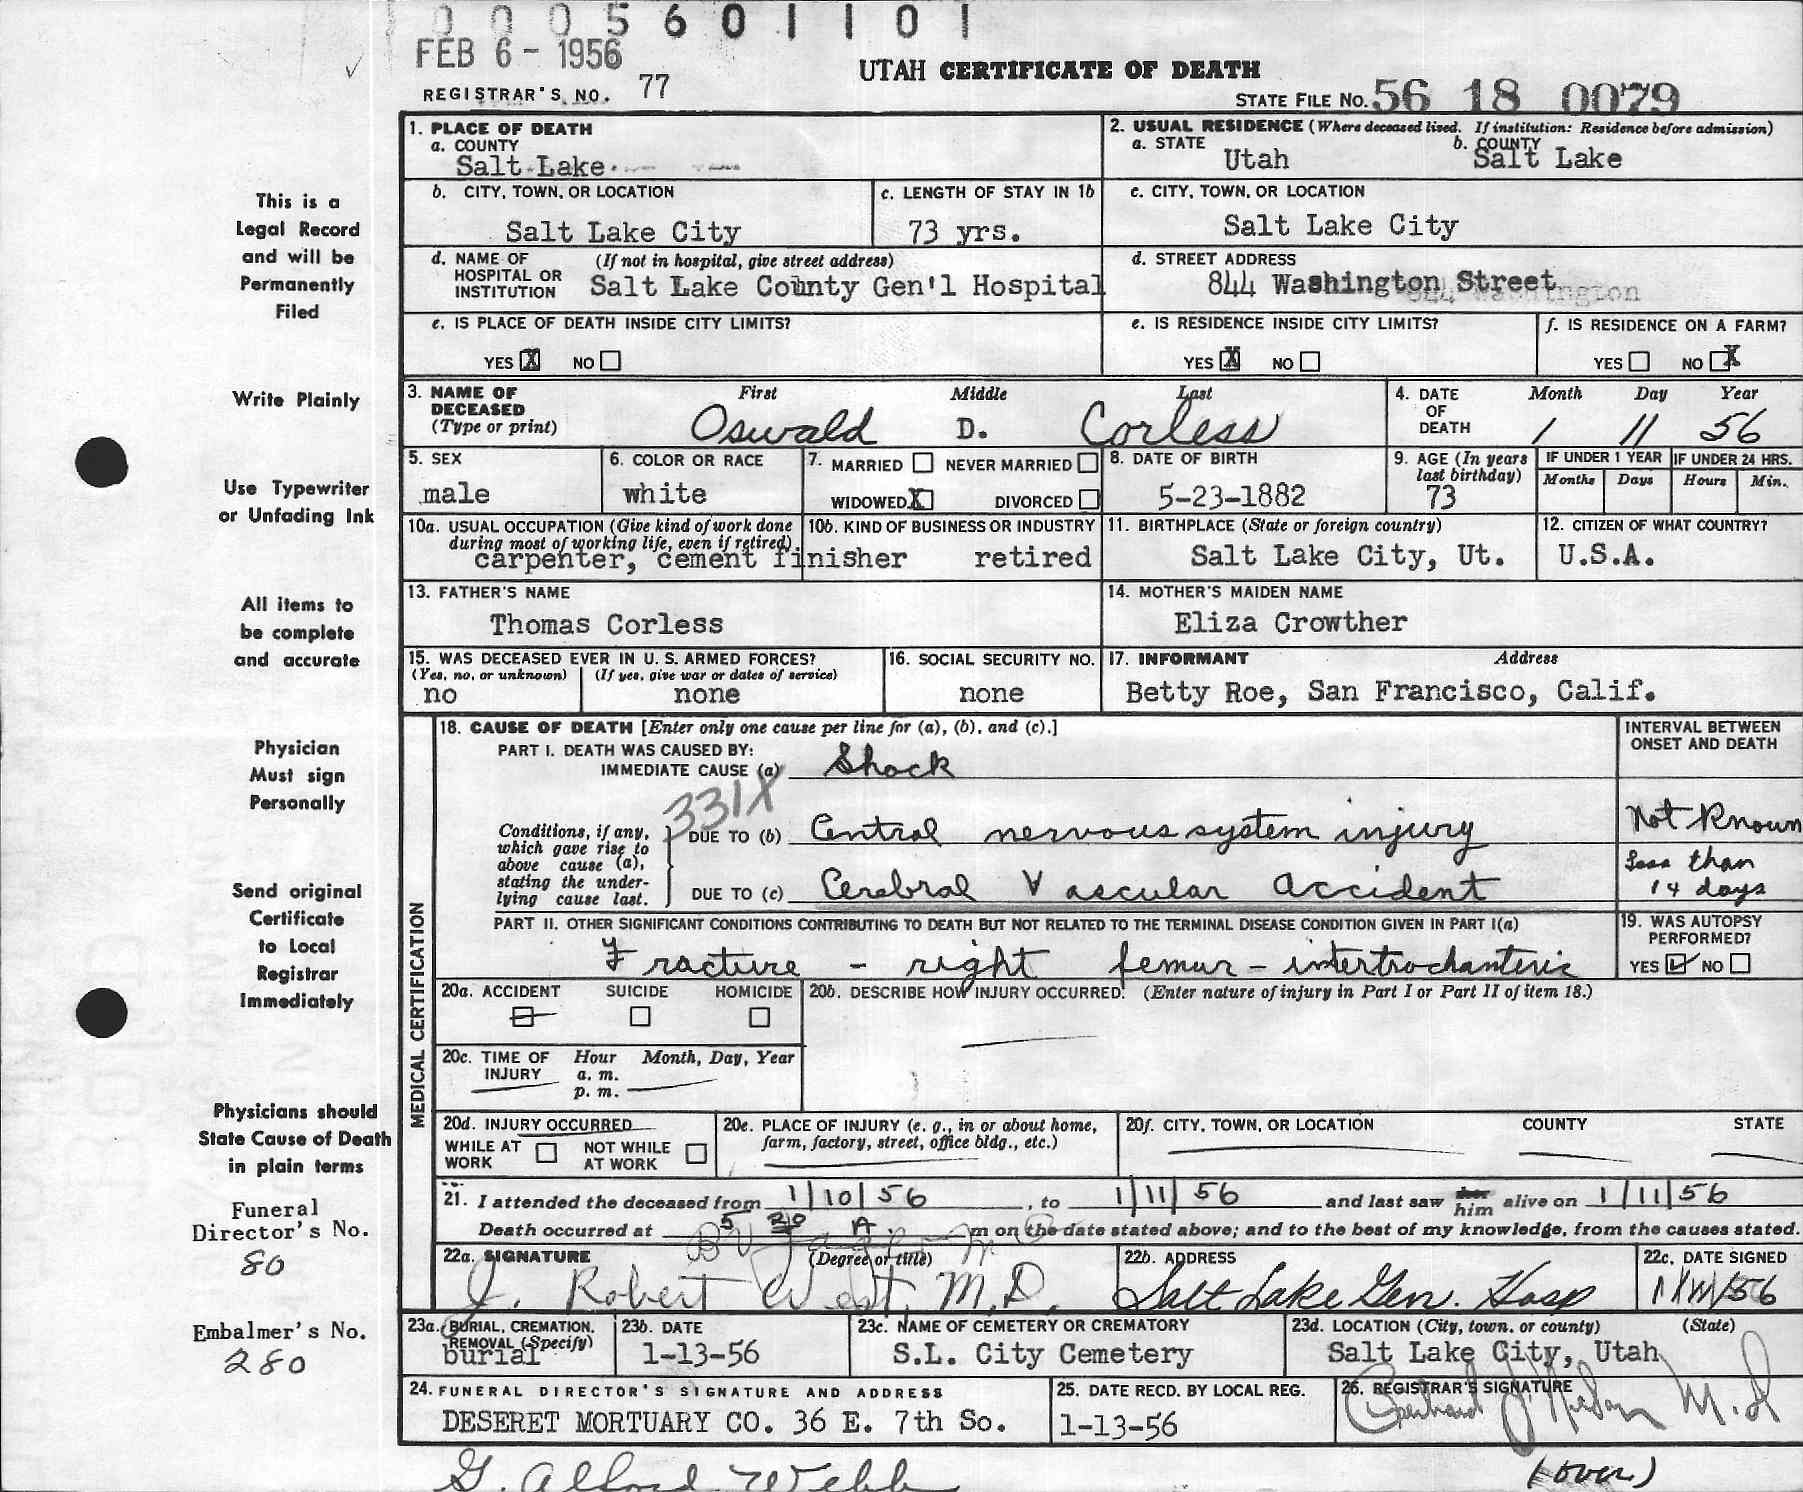 0005601101
FEB 6 - 1956
UTAH CERTIFICATE OF DEATH
REGISTRAR'S NO. 77
STATE FILE NO. 56 18 0079
1. PLACE OF DEATH
a. COUNTY
Salt Lake
2. USUAL RESIDENCE (Where deceased lived. If institution: Residence before admission)
a. STATE Utah b. COUNTY Salt Lake
b. CITY, TOWN, OR LOCATION
Salt Lake City
c. LENGTH OF STAY IN 1b
73 yrs.
c. CITY, TOWN, OR LOCATION
Salt Lake City
d. NAME OF HOSPITAL OR INSTITUTION (If not in hospital, give street address)
Salt Lake County Gen'l Hospital
d. STREET ADDRESS
844 Washington Street
844 Washington
e. IS PLACE OF DEATH INSIDE CITY LIMITS?
YES X NO
e. IS RESIDENCE INSIDE CITY LIMITS?
YES X NO
f. IS RESIDENCE ON A FARM?
YES NO X
3. NAME OF DECEASED (Type or print)
First Middle Last
Oswald D. Corless
4. DATE OF DEATH
Month Day Year
1 11 56
5. SEX
male
6. COLOR OR RACE
white
7. MARRIED NEVER MARRIED
WIDOWED X DIVORCED
8. DATE OF BIRTH
5-23-1882
9. AGE (In years last birthday)
73
IF UNDER 1 YEAR
Months Days
IF UNDER 24 HRS.
Hours Min.
10a. USUAL OCCUPATION (Give kind of work done during most of working life, even if retired)
10b. KIND OF BUSINESS OR INDUSTRY
carpenter, cement finisher retired
11. BIRTHPLACE (State or foreign country)
Salt Lake City, Ut.
12. CITIZEN OF WHAT COUNTRY?
U.S.A.
13. FATHER'S NAME
Thomas Corless
14. MOTHER'S MAIDEN NAME
Eliza Crowther
15. WAS DECEASED EVER IN U. S. ARMED FORCES?
(Yes, no, or unknown) (If yes, give war or dates of service)
no none
16. SOCIAL SECURITY NO.
none
17. INFORMANT Address
Betty Roe, San Francisco, Calif.
MEDICAL CERTIFICATION
18. CAUSE OF DEATH [Enter only one cause per line for (a), (b), and (c).]
INTERVAL BETWEEN ONSET AND DEATH
PART I. DEATH WAS CAUSED BY:
IMMEDIATE CAUSE (a) Shock
331X
Conditions, if any, which gave rise to above cause (a), stating the underlying cause last.
DUE TO (b) Central nervous system injury
Not Known
DUE TO (c) Cerebral Vascular accident
Less than 14 days
PART II. OTHER SIGNIFICANT CONDITIONS CONTRIBUTING TO DEATH BUT NOT RELATED TO THE TERMINAL DISEASE CONDITION GIVEN IN PART I(a)
Fracture - right femur - intertrochanteric
19. WAS AUTOPSY PERFORMED?
YES NO
20a. ACCIDENT SUICIDE HOMICIDE
20b. DESCRIBE HOW INJURY OCCURRED. (Enter nature of injury in Part I or Part II of item 18.)
20c. TIME OF INJURY Hour Month, Day, Year
a. m.
p. m.
20d. INJURY OCCURRED
WHILE AT WORK NOT WHILE AT WORK
20e. PLACE OF INJURY (e. g., in or about home, farm, factory, street, office bldg., etc.)
20f. CITY, TOWN, OR LOCATION COUNTY STATE
21. I attended the deceased from 1/10/56, to 1/11/56 and last saw her him alive on 1/11/56
Death occurred at 5 30 A m on the date stated above; and to the best of my knowledge, from the causes stated.
22a. SIGNATURE (Degree or title)
J. Robert West, M.D.
22b. ADDRESS
Salt Lake Gen. Hosp
22c. DATE SIGNED
23a. BURIAL, CREMATION, REMOVAL (Specify)
burial
23b. DATE
1-13-56
23c. NAME OF CEMETERY OR CREMATORY
S.L. City Cemetery
23d. LOCATION (City, town, or county) (State)
Salt Lake City, Utah
24. FUNERAL DIRECTOR'S SIGNATURE AND ADDRESS
DESERET MORTUARY CO. 36 E. 7th So.
25. DATE RECD. BY LOCAL REG.
1-13-56
26. REGISTRAR'S SIGNATURE
G. Alford Webb
(over)
This is a
Legal Record
and will be
Permanently
Filed
Write Plainly
Use Typewriter
or Unfading Ink
All items to
be complete
and accurate
Physician
Must sign
Personally
Send original
Certificate
to Local
Registrar
Immediately
Physicians should
State Cause of Death
in plain terms
Funeral
Director's No.
80
Embalmer's No.
280